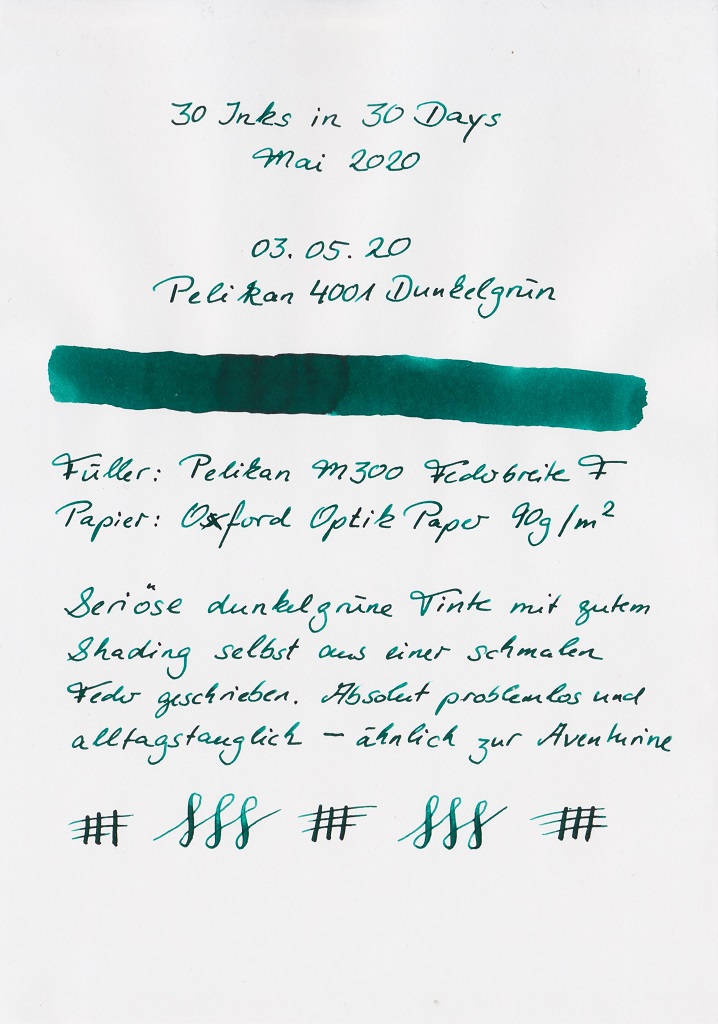 30 Inks in 30 Days
Mai 2020
03.05.20
Pelikan 4001 Dunkelgrün
Füller: Pelikan M300 Federbreite F
Papier: Oxford Optik Paper 90g/m²
Seriöse dunkelgrüne Tinte mit gutem
Shading selbst aus einer schmalen
Feder geschrieben. Absolut problemlos und
alltagstauglich – ähnlich zur Aventurine